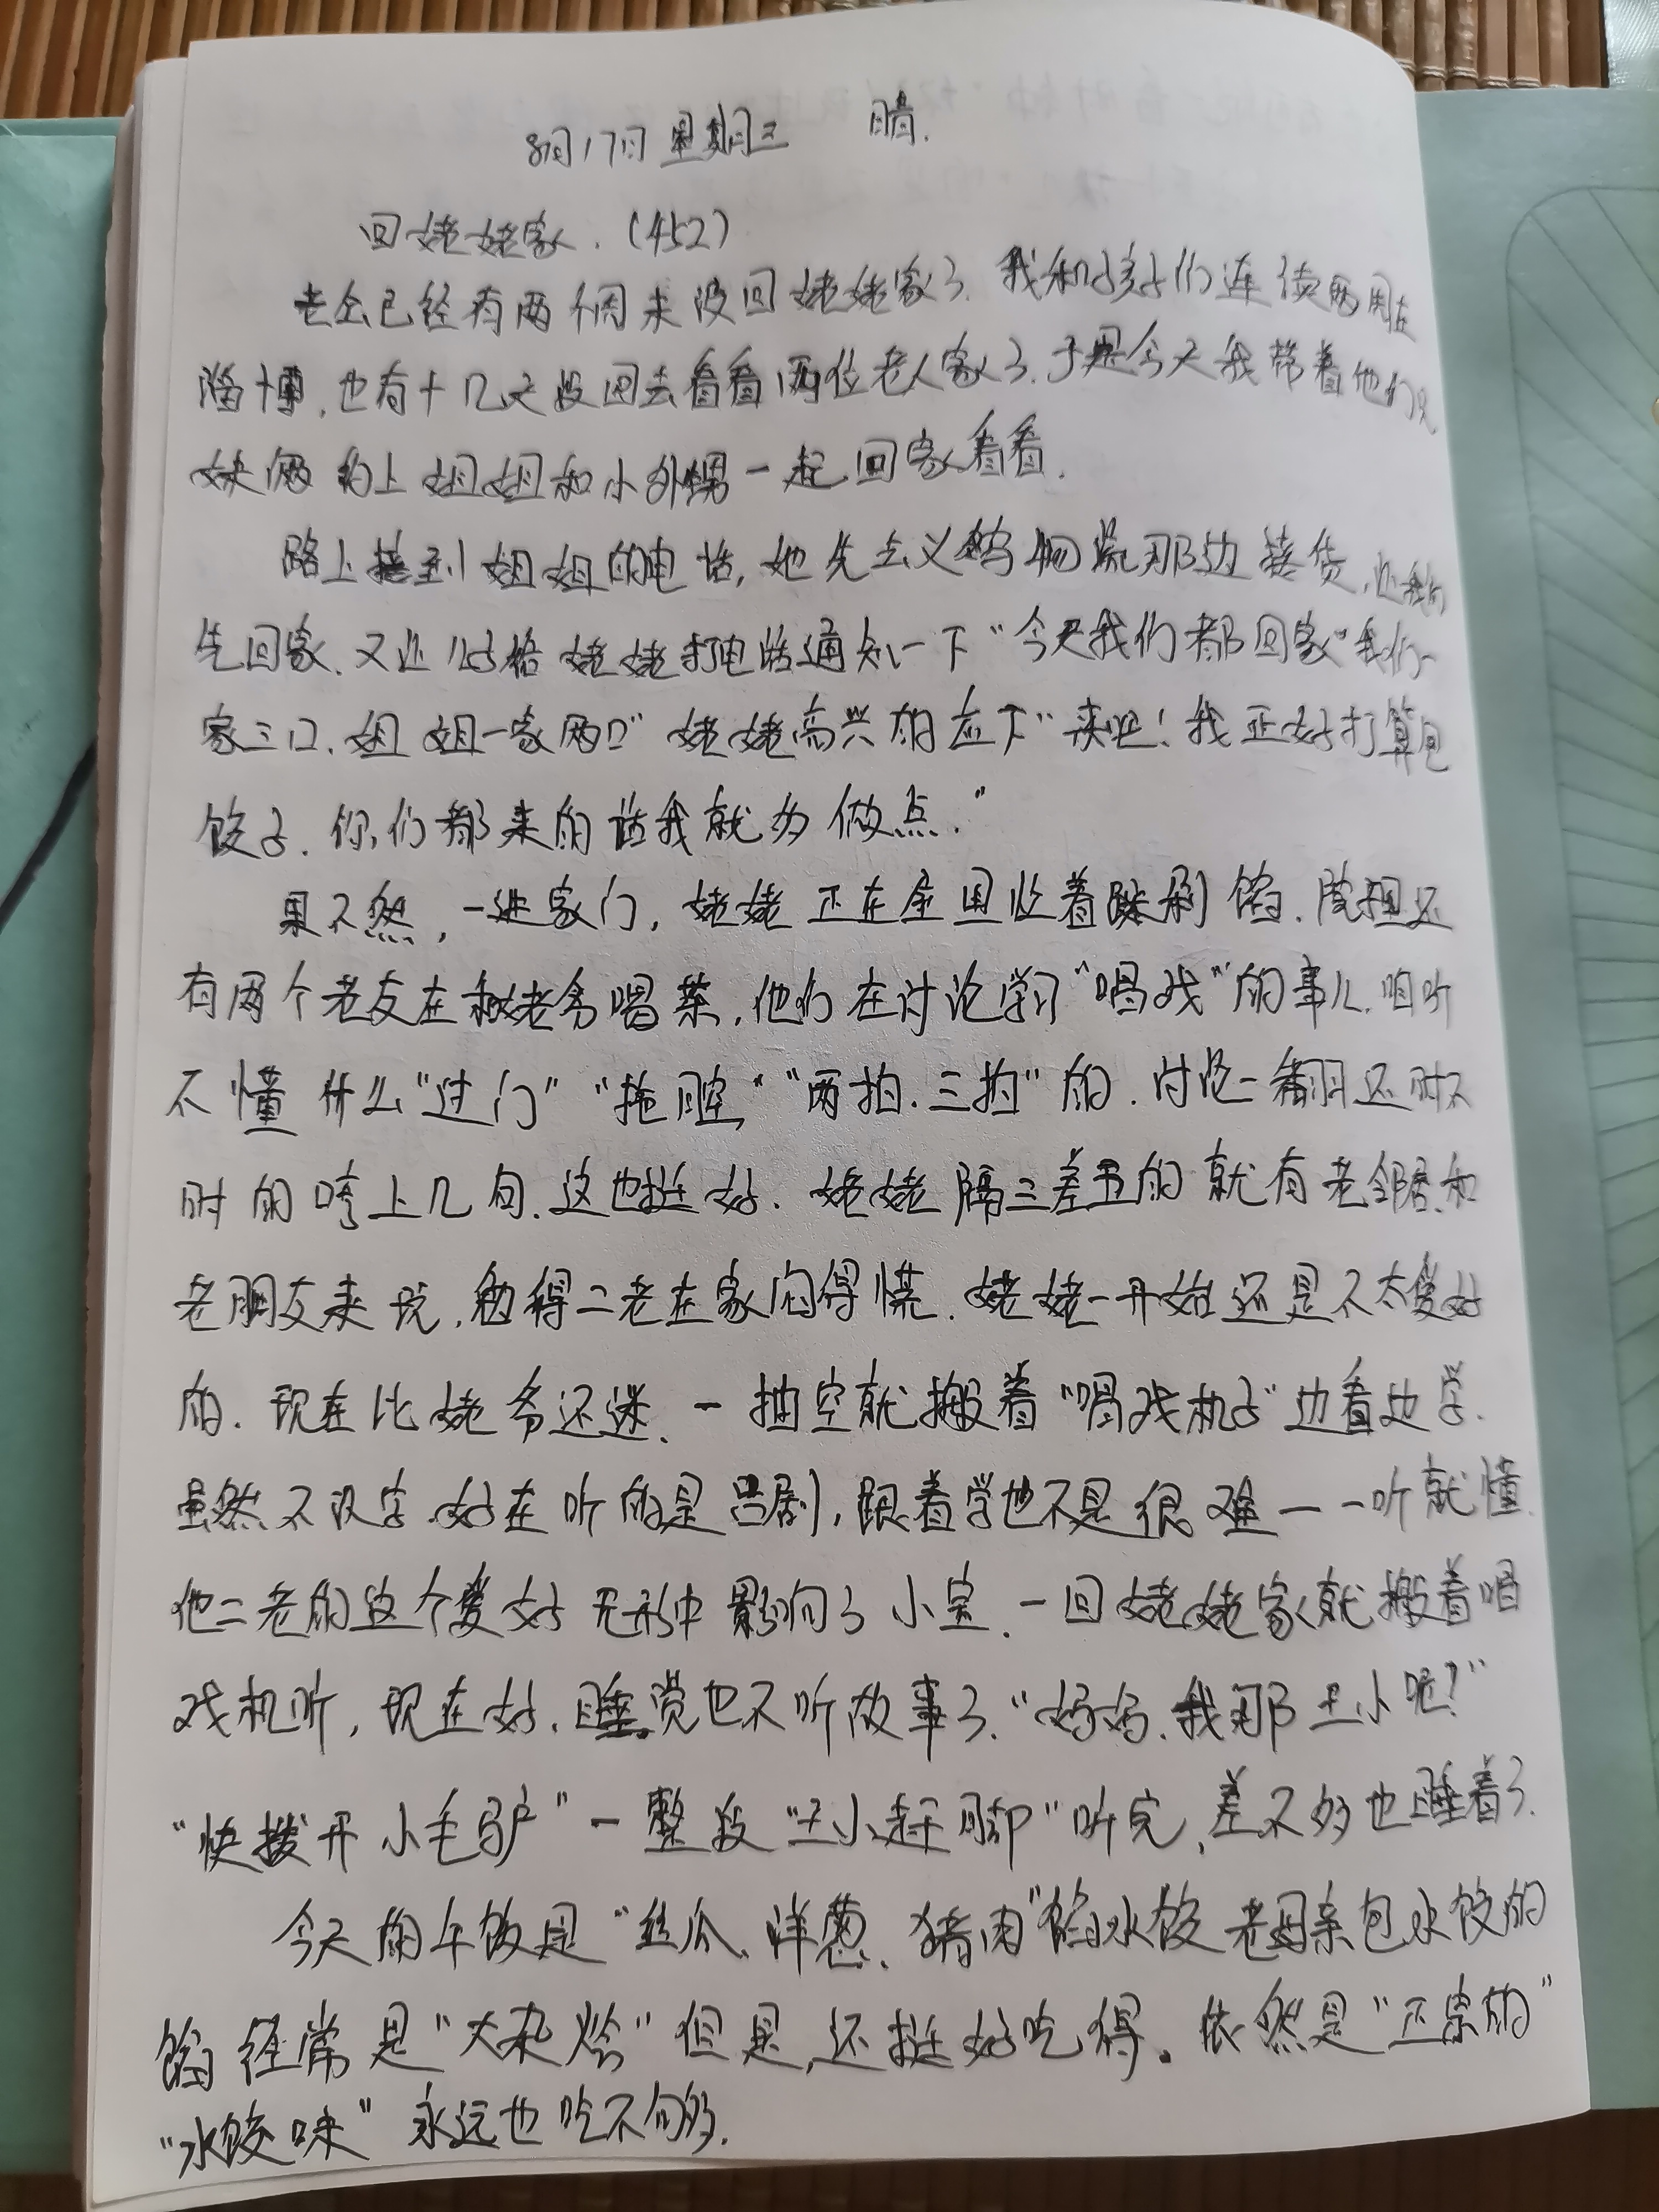 8月17日 星期三 晴.
回姥姥家.(452)
老公已经有两个周末没回姥姥家了.我和孩子们连续两周在
淄博,也有十几天没回去看看两位老人家了.于是今天我带着他们兄
妹俩约上姐姐和小外甥一起回家看看.
路上接到姐姐的电话,她先去义鹤物流那边接货,让我们
先回家.又让好给姥姥打电话通知一下“今天我们都回家”我们一
家三口.姐姐一家两口”姥姥高兴的应下“来吧!我正好打算包
饺子.你们都来的话我就多做点.”
果不然,一进家门,姥姥正在忙着剁馅.院里还
有两个老友在和姥爷喝茶,他们在讨论学习“唱戏”的事儿.咱听
不懂什么“过门”“拖腔”“两拍.三拍”的.讨论一翻还时不
时的哼上几句.这也挺好.姥姥隔三差五的就有老邻居.和
老朋友来玩,勉得二老在家闷得慌.姥姥一开始还是不太爱好
的.现在比姥爷还迷.一抽空就搬着“唱戏机子”边看边学.
虽然不识字.好在听的是吕剧,跟着学也不是很难一一听就懂.
他二老的这个爱好无形中影响了小宝.一回姥姥家就搬着唱
戏机听,现在好.睡觉也不听故事了.“妈妈.我那王小呢?”
“快拨开小毛驴”一整段“王小赶脚”听完,差不多也睡着了.
今天的午饭是“丝瓜.洋葱.猪肉”馅水饺老母亲包水饺的
馅经常是“大杂烩”但是,还挺好吃得.依然是“正宗的”
“水饺味”永远也吃不够.